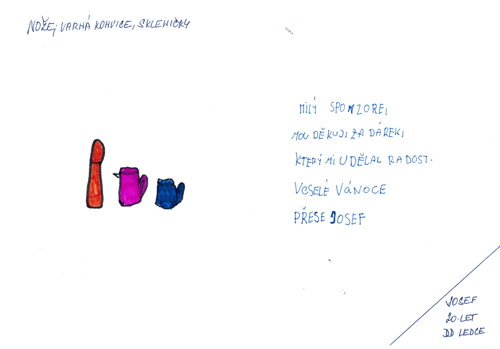 NOŽE, VARNÁ KONVICE, SKLENIČKY
MILÝ SPONZORE,
MOC DĚKUJI ZA DÁREK,
KTERÝ MI UDĚLAL RADOST.
VESELÉ VÁNOCE
PŘEJE JOSEF
JOSEF
20 LET
DD LEDCE